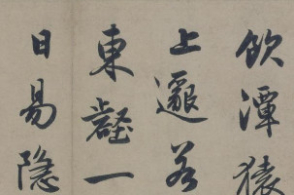 飲潭猿
上邈若
東壑一
日易隱